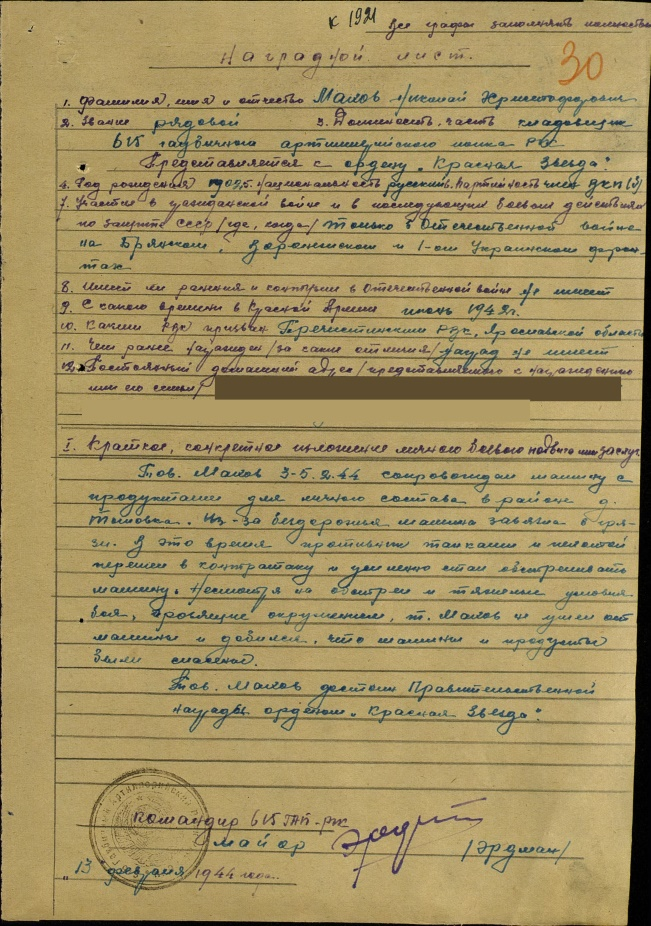 к 1921 Все графы заполнять полностью
Наградной лист.
30
1. Фамилия, имя и отчество Махов Николай Христофорович
2. Звание рядовой 3. Должность, часть кладовщик
615 гаубичного артиллерийского полка РГК
Представляется к ордену "Красная Звезда".
4. Год рождения 1902г. Национальность русский 6. Партийность член ВКП(б)
7. Участие в гражданской войне и в последующих боевых действиях
по защите СССР /где, когда/ только в Отечественной войне
на Брянском, Воронежском и 1-ом Украинском фрон-
тах
8. Имеет ли ранения и контузии в Отечественной войне Не имеет
9. С какого времени в Красной Армии июнь 1942г.
10. Каким РВК призван РВК, Ярославской области
11. Чем ранее награжден /за какие отличия/ наград не имеет
12. Постоянный домашний адрес /представляемого к награждению
или его семьи/
I. Краткое, конкретное изложение личного боевого подвига или заслуг
Тов. Махов 3-5.2.44 сопровождал машину с
продуктами для личного состава в район д.
Из-за бездорожья машина завязла в гря-
зи. В это время противник танками и пехотой
перешел в контратаку и усиленно стал обстреливать
машину. Несмотря на обстрел и тяжелые условия
боя, грозящие окружением, т. Махов не ушел от
машины и добился, что машина и продукты
были спасены.
Тов. Махов достоин Правительственной
награды орденом "Красная Звезда".
Командир 615 ГАП-РГК
майор /Эрдман/
"13 февраля 1944 года.